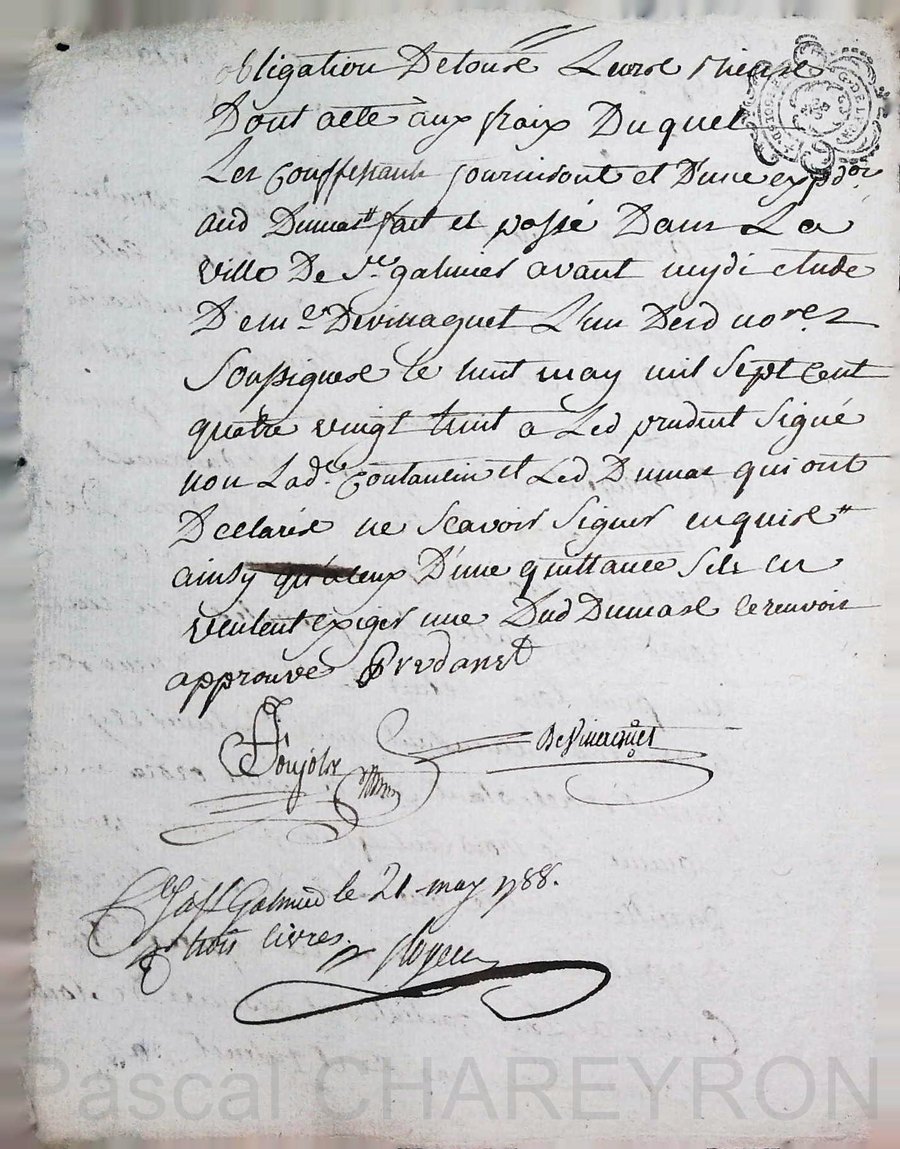 obligation De tous Leurs biens
Dont acte aux fraix Du quel
Les Confessants fourniront et D'une expdon
aud Dumas fait et passé Dans La
ville De St galmier avant midy etude
De me Devinaquet L'un Des d nores
Soussignes le huit may mil Sept Cent
quatre vingt huit a Led prudent Signé
non Lade Coutancin et Led Dumas qui ont
Declaré ne Scavoir Signer enquis
ainsy qu'a ceux D'une quittance S'ils en
veulent exiger une Dud Dumas le renvoi
approuvé Prvdanet
Soujols
DeVineaquet
Galmier le 21 may 1788.
trois livres.
Royer
Pascal CHAREYRON